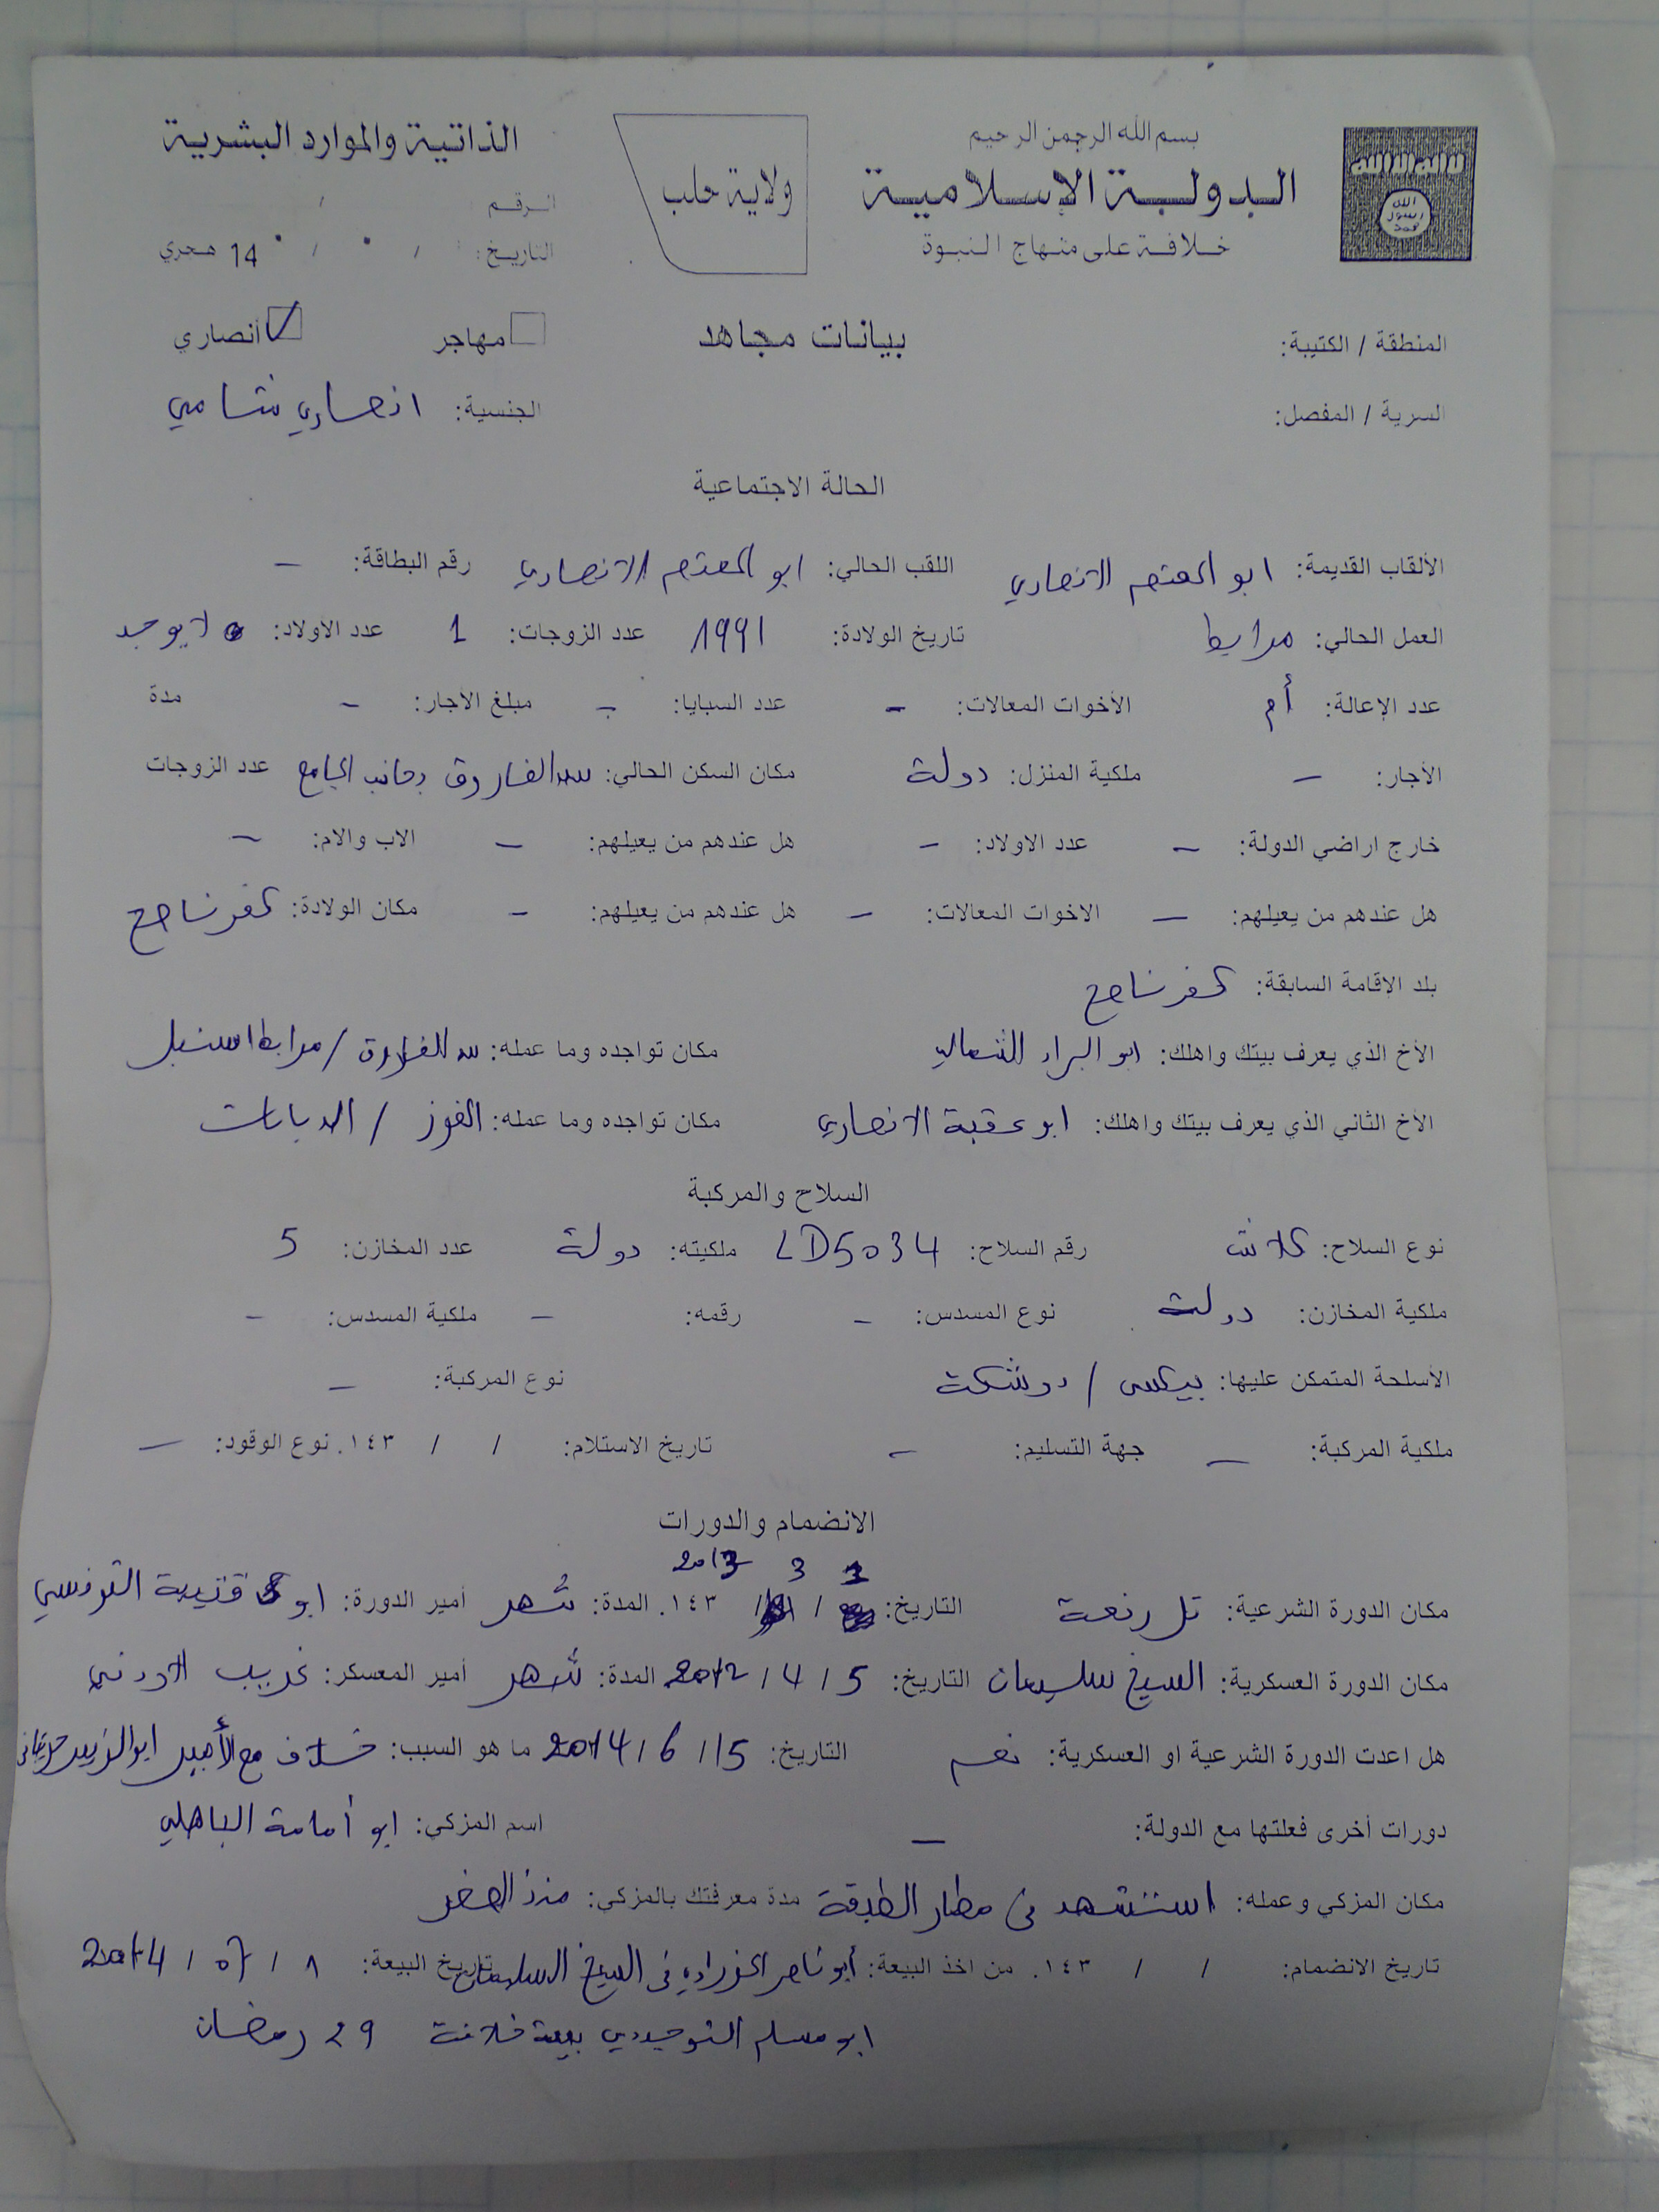 بسم الله الرحمن الرحيم
الدولة الإسلامية
خلافة على منهاج النبوة
لا إله إلا الله
الله رسول محمد
ولاية حلب
الذاتية والموارد البشرية
الرقم: /
التاريخ: / / 14 هجري
المنطقة / الكتيبة: بيانات مجاهد مهاجر أنصاري
السرية / المفصل: الجنسية: انصاري شامي
الحالة الاجتماعية
الألقاب القديمة: ابو المعتصم الانصاري اللقب الحالي: ابو المعتصم الانصاري رقم البطاقة: –
العمل الحالي: مرابط تاريخ الولادة: 1991 عدد الزوجات: 1 عدد الاولاد: لا يوجد
عدد الإعالة: أم الأخوات المعالات: – عدد السبايا: – مبلغ الأجار: – مدة
الأجار: – ملكية المنزل: دولة مكان السكن الحالي: سد الفاروق بجانب الجامع عدد الزوجات
خارج اراضي الدولة: – عدد الاولاد: – هل عندهم من يعيلهم: – الاب والام: –
هل عندهم من يعيلهم: – الاخوات المعالات: – هل عندهم من يعيلهم: – مكان الولادة: كفرناصح
بلد الإقامة السابقة: كفرناصح
الأخ الذي يعرف بيتك واهلك: ابو البراء الشمالي مكان تواجده وما عمله: سد الفاروق / مرابط
الأخ الثاني الذي يعرف بيتك واهلك: ابو عقبة الانصاري مكان تواجده وما عمله: الفوز / الدبابات
السلاح والمركبة
نوع السلاح: كلاشن رقم السلاح: LD5034 ملكيته: دولة عدد المخازن: 5
ملكية المخازن: دولة نوع المسدس: – رقمه: – ملكية المسدس: –
الأسلحة المتمكن عليها: بيكسي / دوشكة نوع المركبة: –
ملكية المركبة: – جهة التسليم: – تاريخ الاستلام: / / ١٤٣. نوع الوقود: –
الانضمام والدورات
مكان الدورة الشرعية: تل رفعت التاريخ: 1 / 3 / 2013 ١٤٣. المدة: شهر أمير الدورة: ابو قتيبة التونسي
مكان الدورة العسكرية: الشيخ سليمان التاريخ: 5 / 4 / 2012 المدة: شهر أمير المعسكر: غريب الاردني
هل اعدت الدورة الشرعية او العسكرية: نعم التاريخ: 15 / 6 / 2014 ما هو السبب: خلاف مع الأمير ابو الزبير
دورات أخرى فعلتها مع الدولة: – اسم المزكي: ابو أمامة الباهلي
مكان المزكي وعمله: استشهد في مطار الطبقة مدة معرفتك بالمزكي: منذ الصغر
تاريخ الانضمام: / / ١٤٣. من اخذ البيعة: أبو ناصر في الشيخ السليمان تاريخ البيعة: ١ / / 2014
ابو مسلم التوحيدي بيعة خلافة 29 رمضان